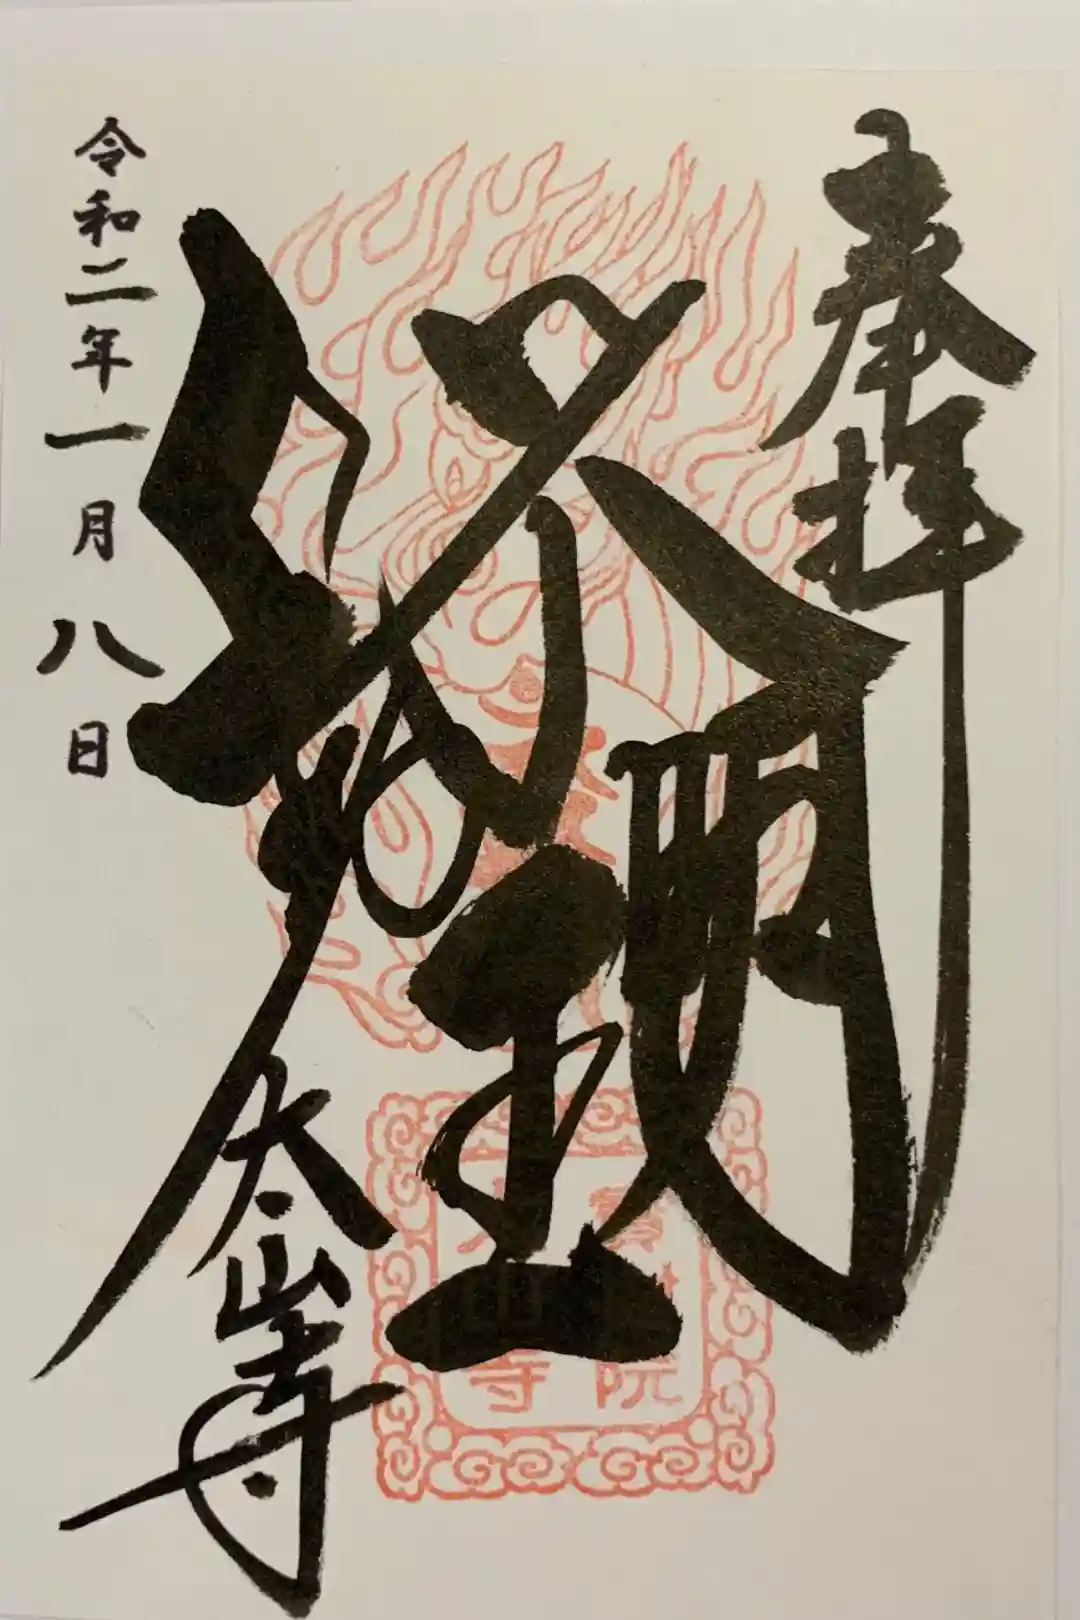 奉拝
不動明王
太山寺
令和二年一月八日
院
山寺